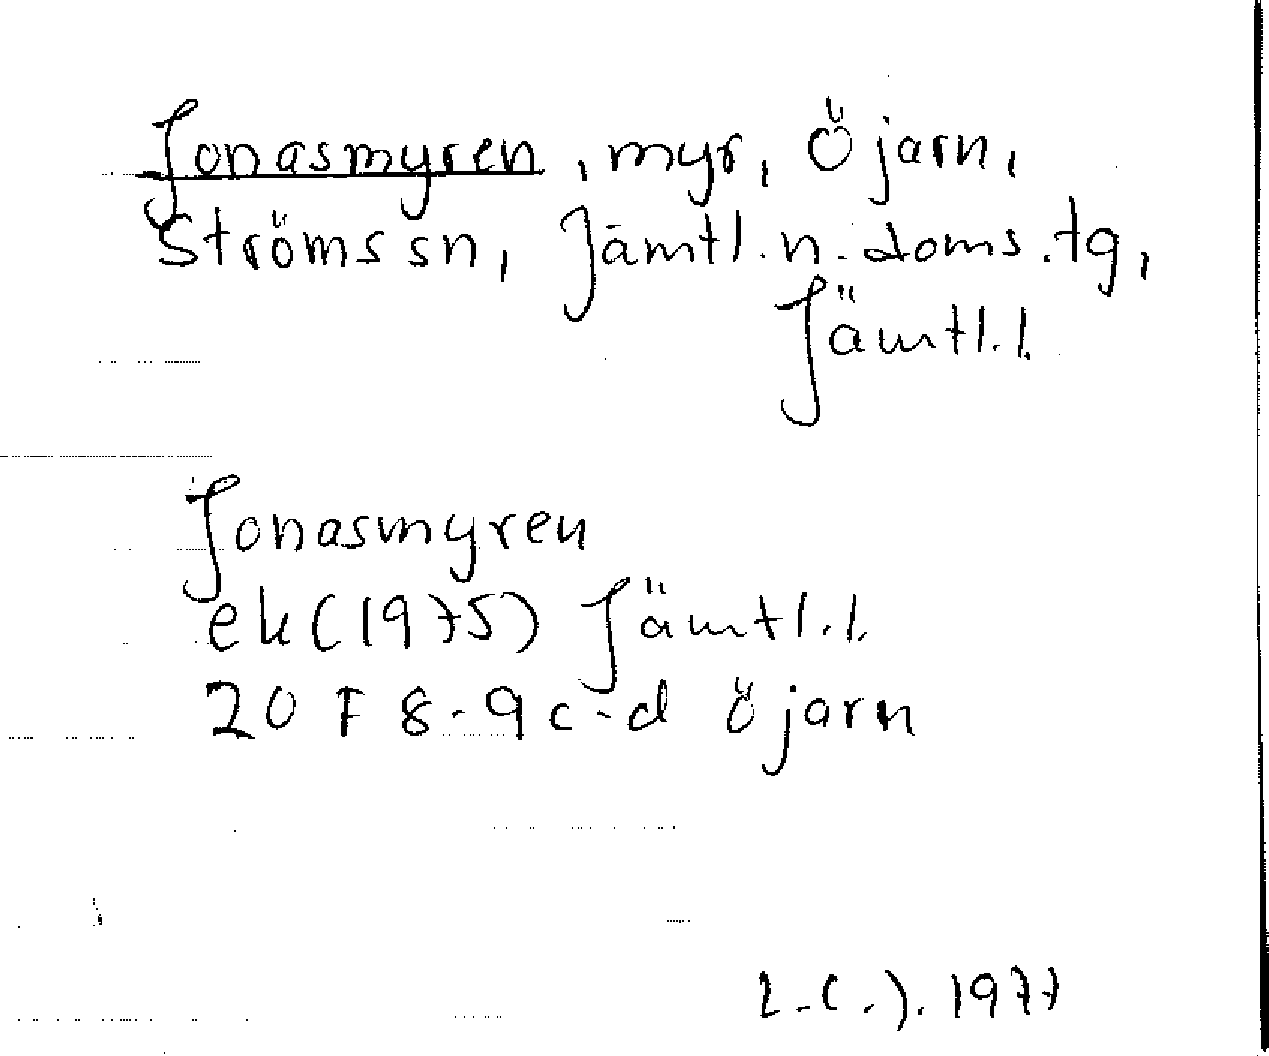 Jonasmyren, myr, Öjarn,
Ströms sn, Jämtl. n. doms. tg,
Jämtl. l.
Jonasmyren
ek (1975) Jämtl. l.
20 F 8-9 c-d Öjarn
1977